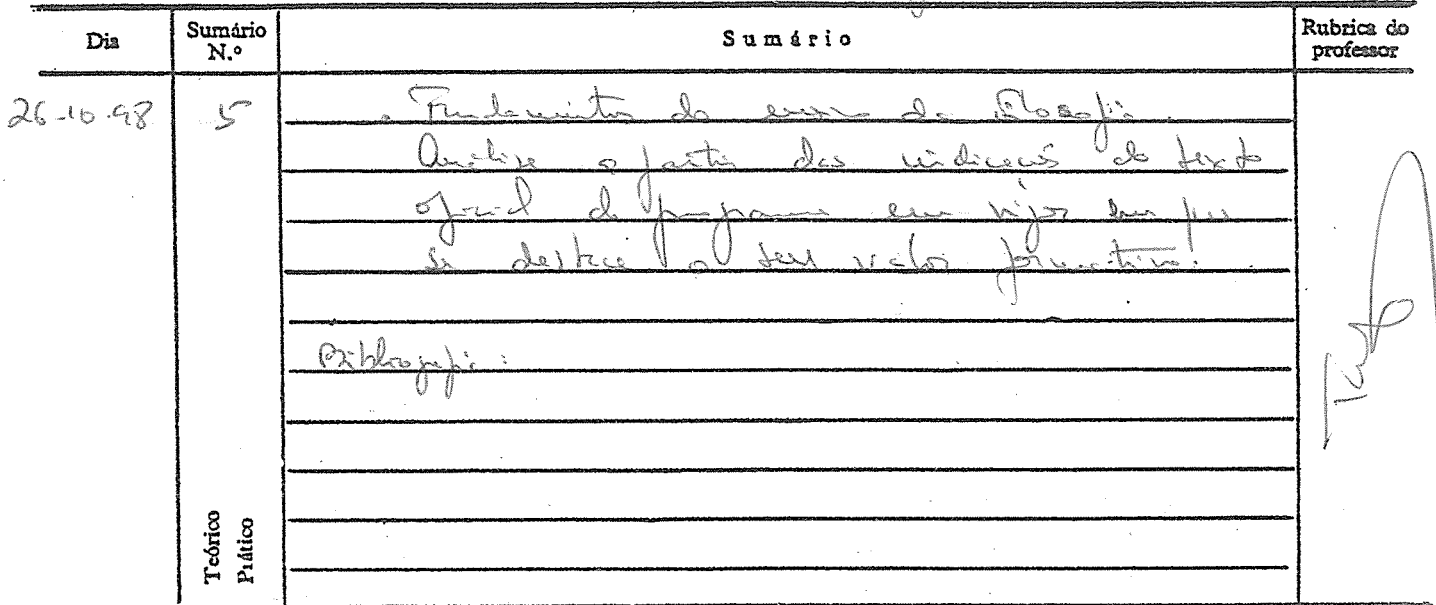 Dia Sumário N.º Sumário Rubrica do professor
26-10-98 5 . Fundamentos do ensino da Filosofia.
Análise a partir das indicações do texto
oficial do programa em vigor em que
se destaca o seu valor formativo.
Bibliografia:
Teórico
Prático